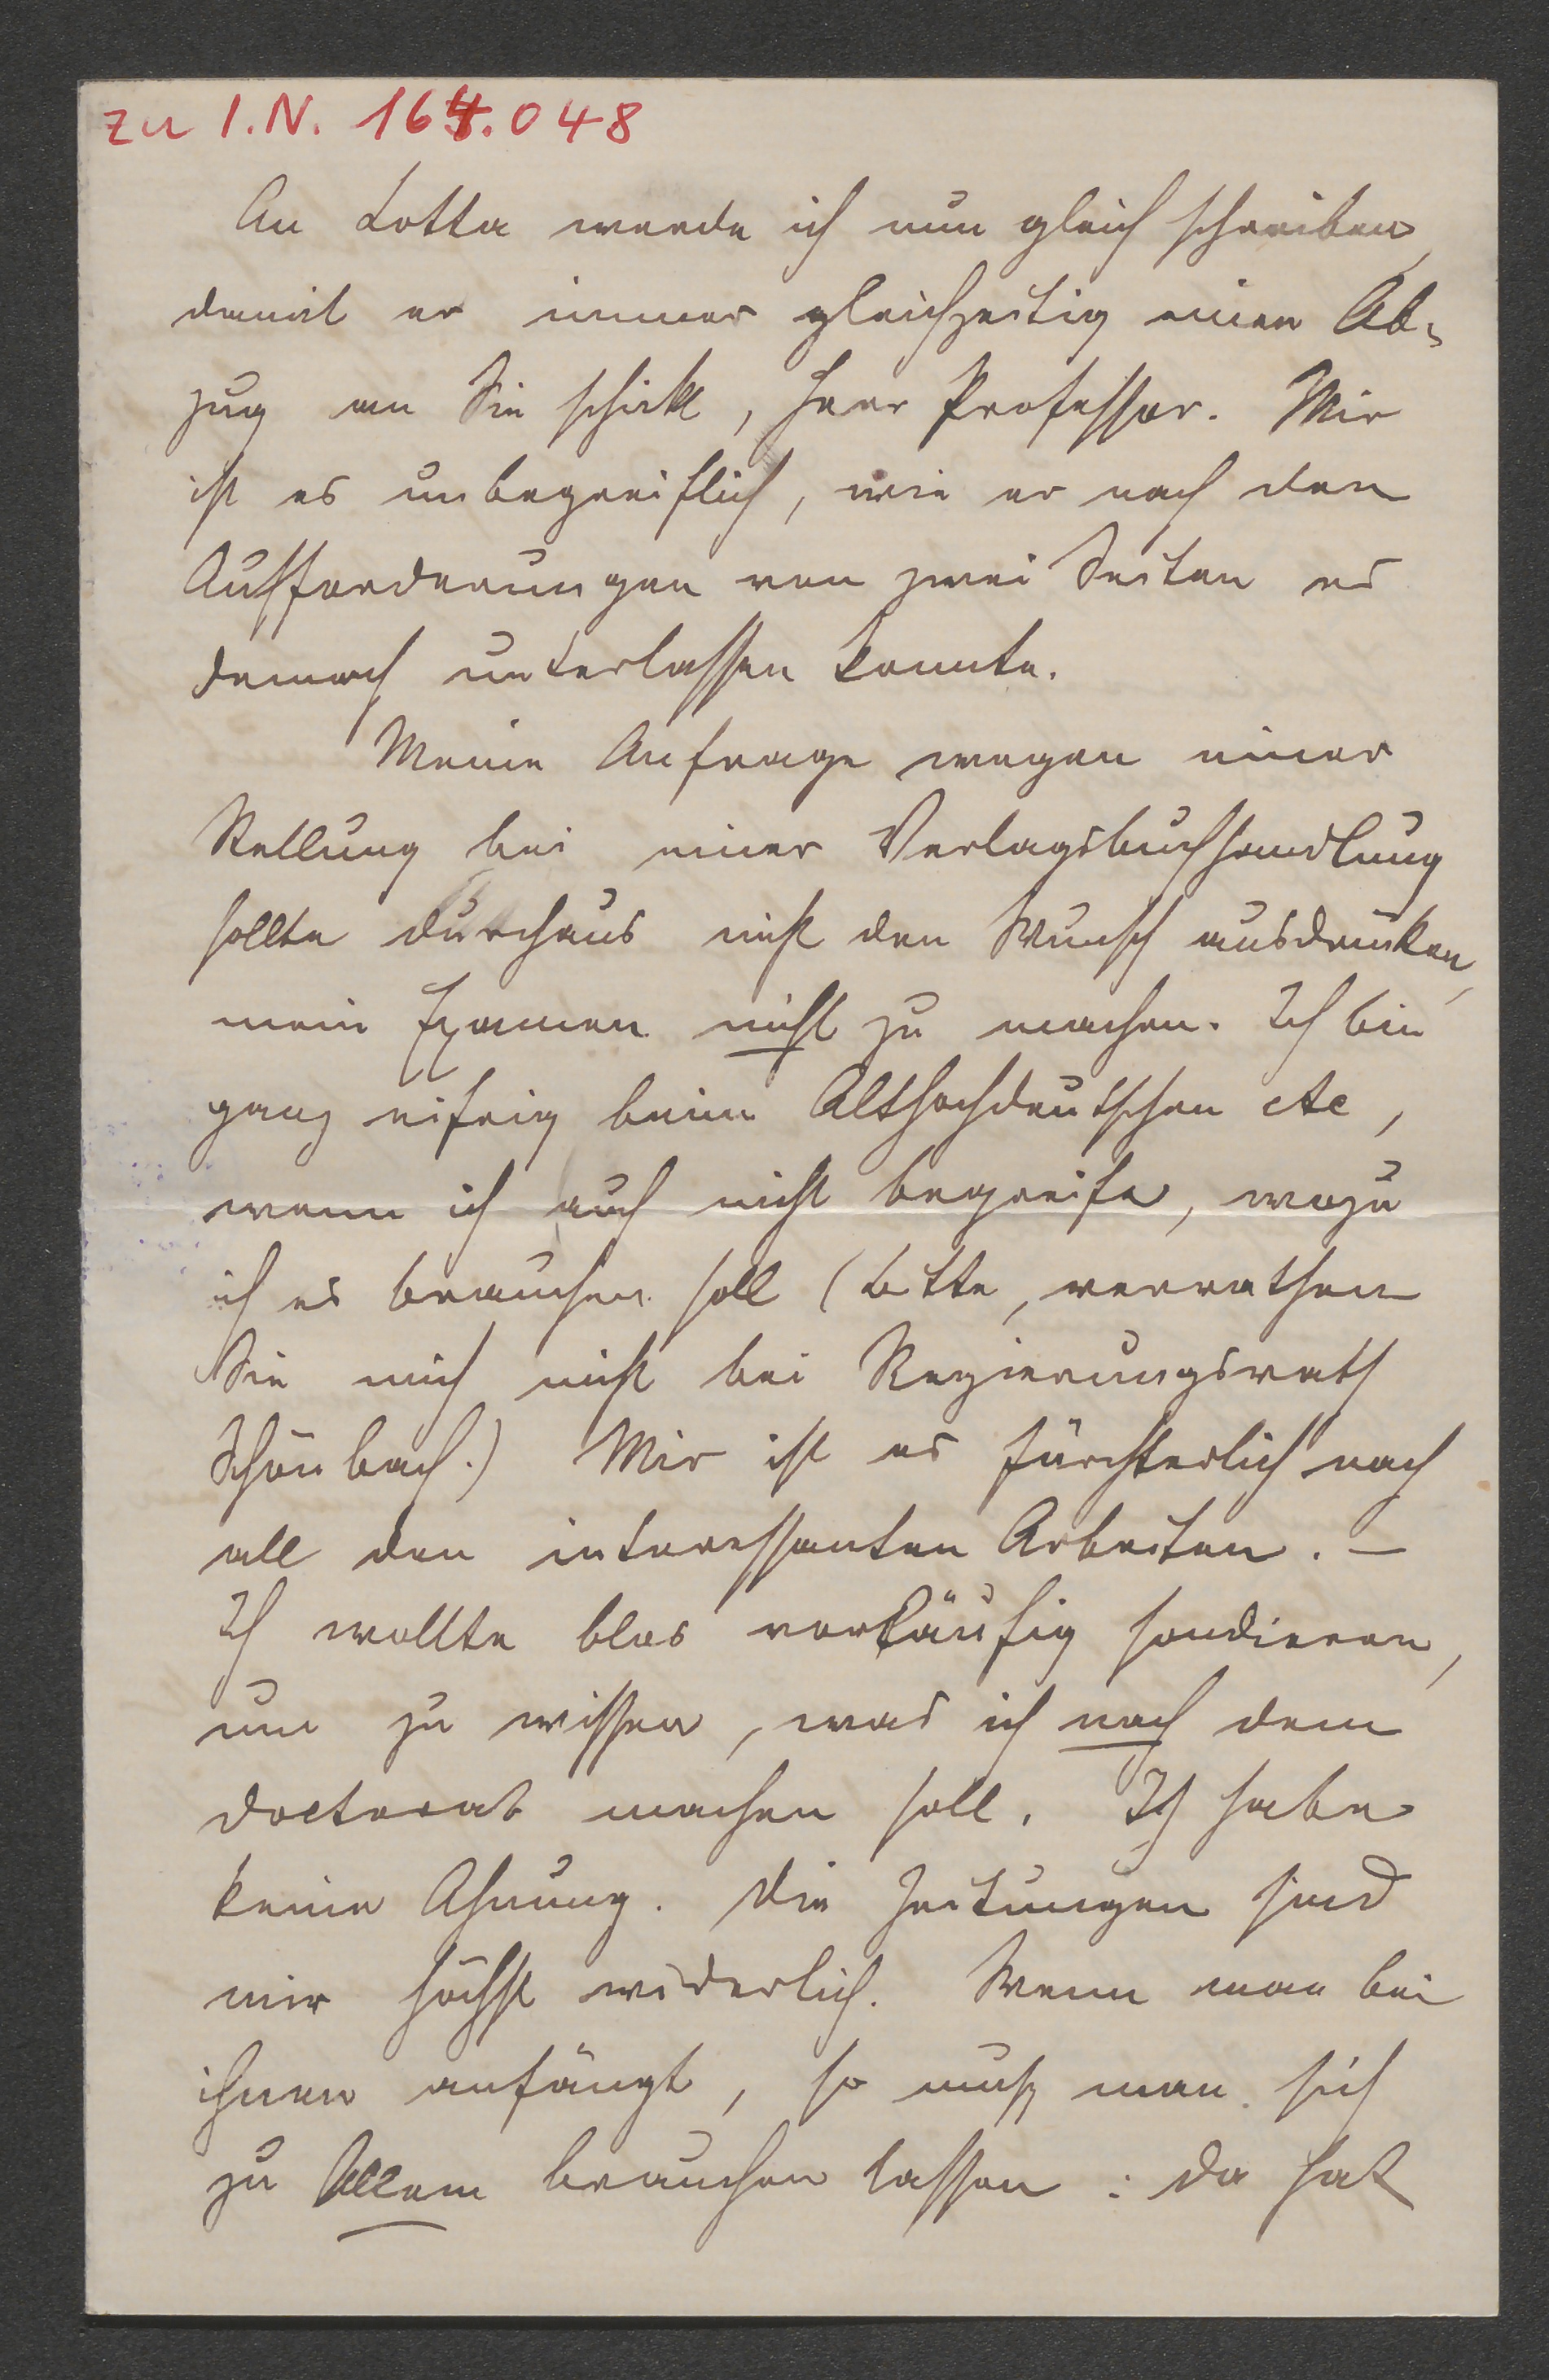 zu I.N. 164.048
An Cotta werde ich nun gleich schreiben,
damit er immer gleichzeitig einen Ab-
zug an Sie schickt, Herr Professor. Mir
ist es unbegreiflich, wie er nach den
Aufforderungen von zwei Seiten es
dennoch unterlassen konnte.
Meine Anfrage wegen einer
Stellung bei einer Verlagsbuchhandlung
sollte durchaus nicht den Wunsch ausdrücken,
mein Examen nicht zu machen. Ich bin
ganz eifrig beim Althochdeutschen etc,
wenn ich auch nicht begreife, wozu
ich es brauchen soll (bitte, verrathen
Sie mich nicht bei Regierungsrath
Schönbach.) Mir ist es fürchterlich nach
all den interessanten Arbeiten. –
Ich wollte blos vorläufig sondieren,
um zu wissen, was ich nach dem
Doctorat machen soll. Ich habe
keine Ahnung. Die Zeitungen sind
mir höchst widerlich. Wenn man bei
ihnen anfängt, so muß man sich
zu Allem brauchen lassen: da hat